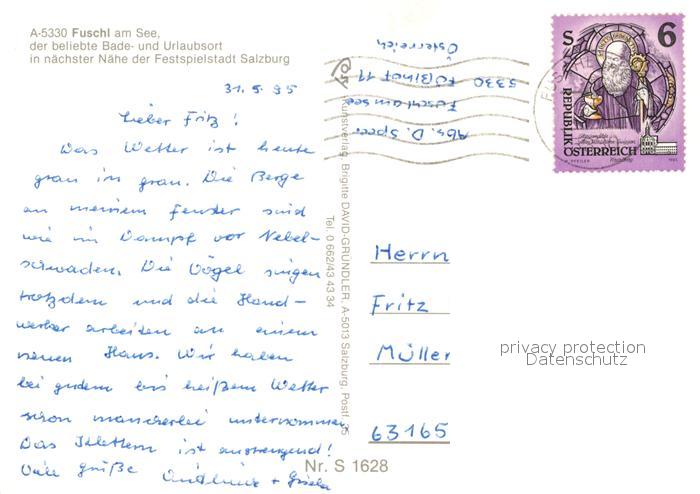 A-5330 Fuschl am See,
der beliebte Bade- und Urlaubsort
in nächster Nähe der Festspielstadt Salzburg
31.5.95
Lieber Fritz!
Das Wetter ist heute
grau in grau. Die Berge
an meinem Fenster sind
wie in Dampf vor Nebel-
schwaden. Die Vögel singen
trotzdem und die Hand-
werker arbeiten an einem
neuen Haus. Wir haben
bei gutem bis heißem Wetter
schon mancherlei unternommen.
Das Klettern ist anstrengend!
Viele Grüße + Gisela
Abs. D. Speer
Fuschl am See
5330
Österreich
Kunstverlag Brigitte DAVID-GRÜNDLER, A-5013 Salzburg, Postf. 35
Tel. 0 662/43 43 34
Nr. S 1628
S 6
REPUBLIK
ÖSTERREICH
Herrn
Fritz
Müller
63165
privacy protection
Datenschutz